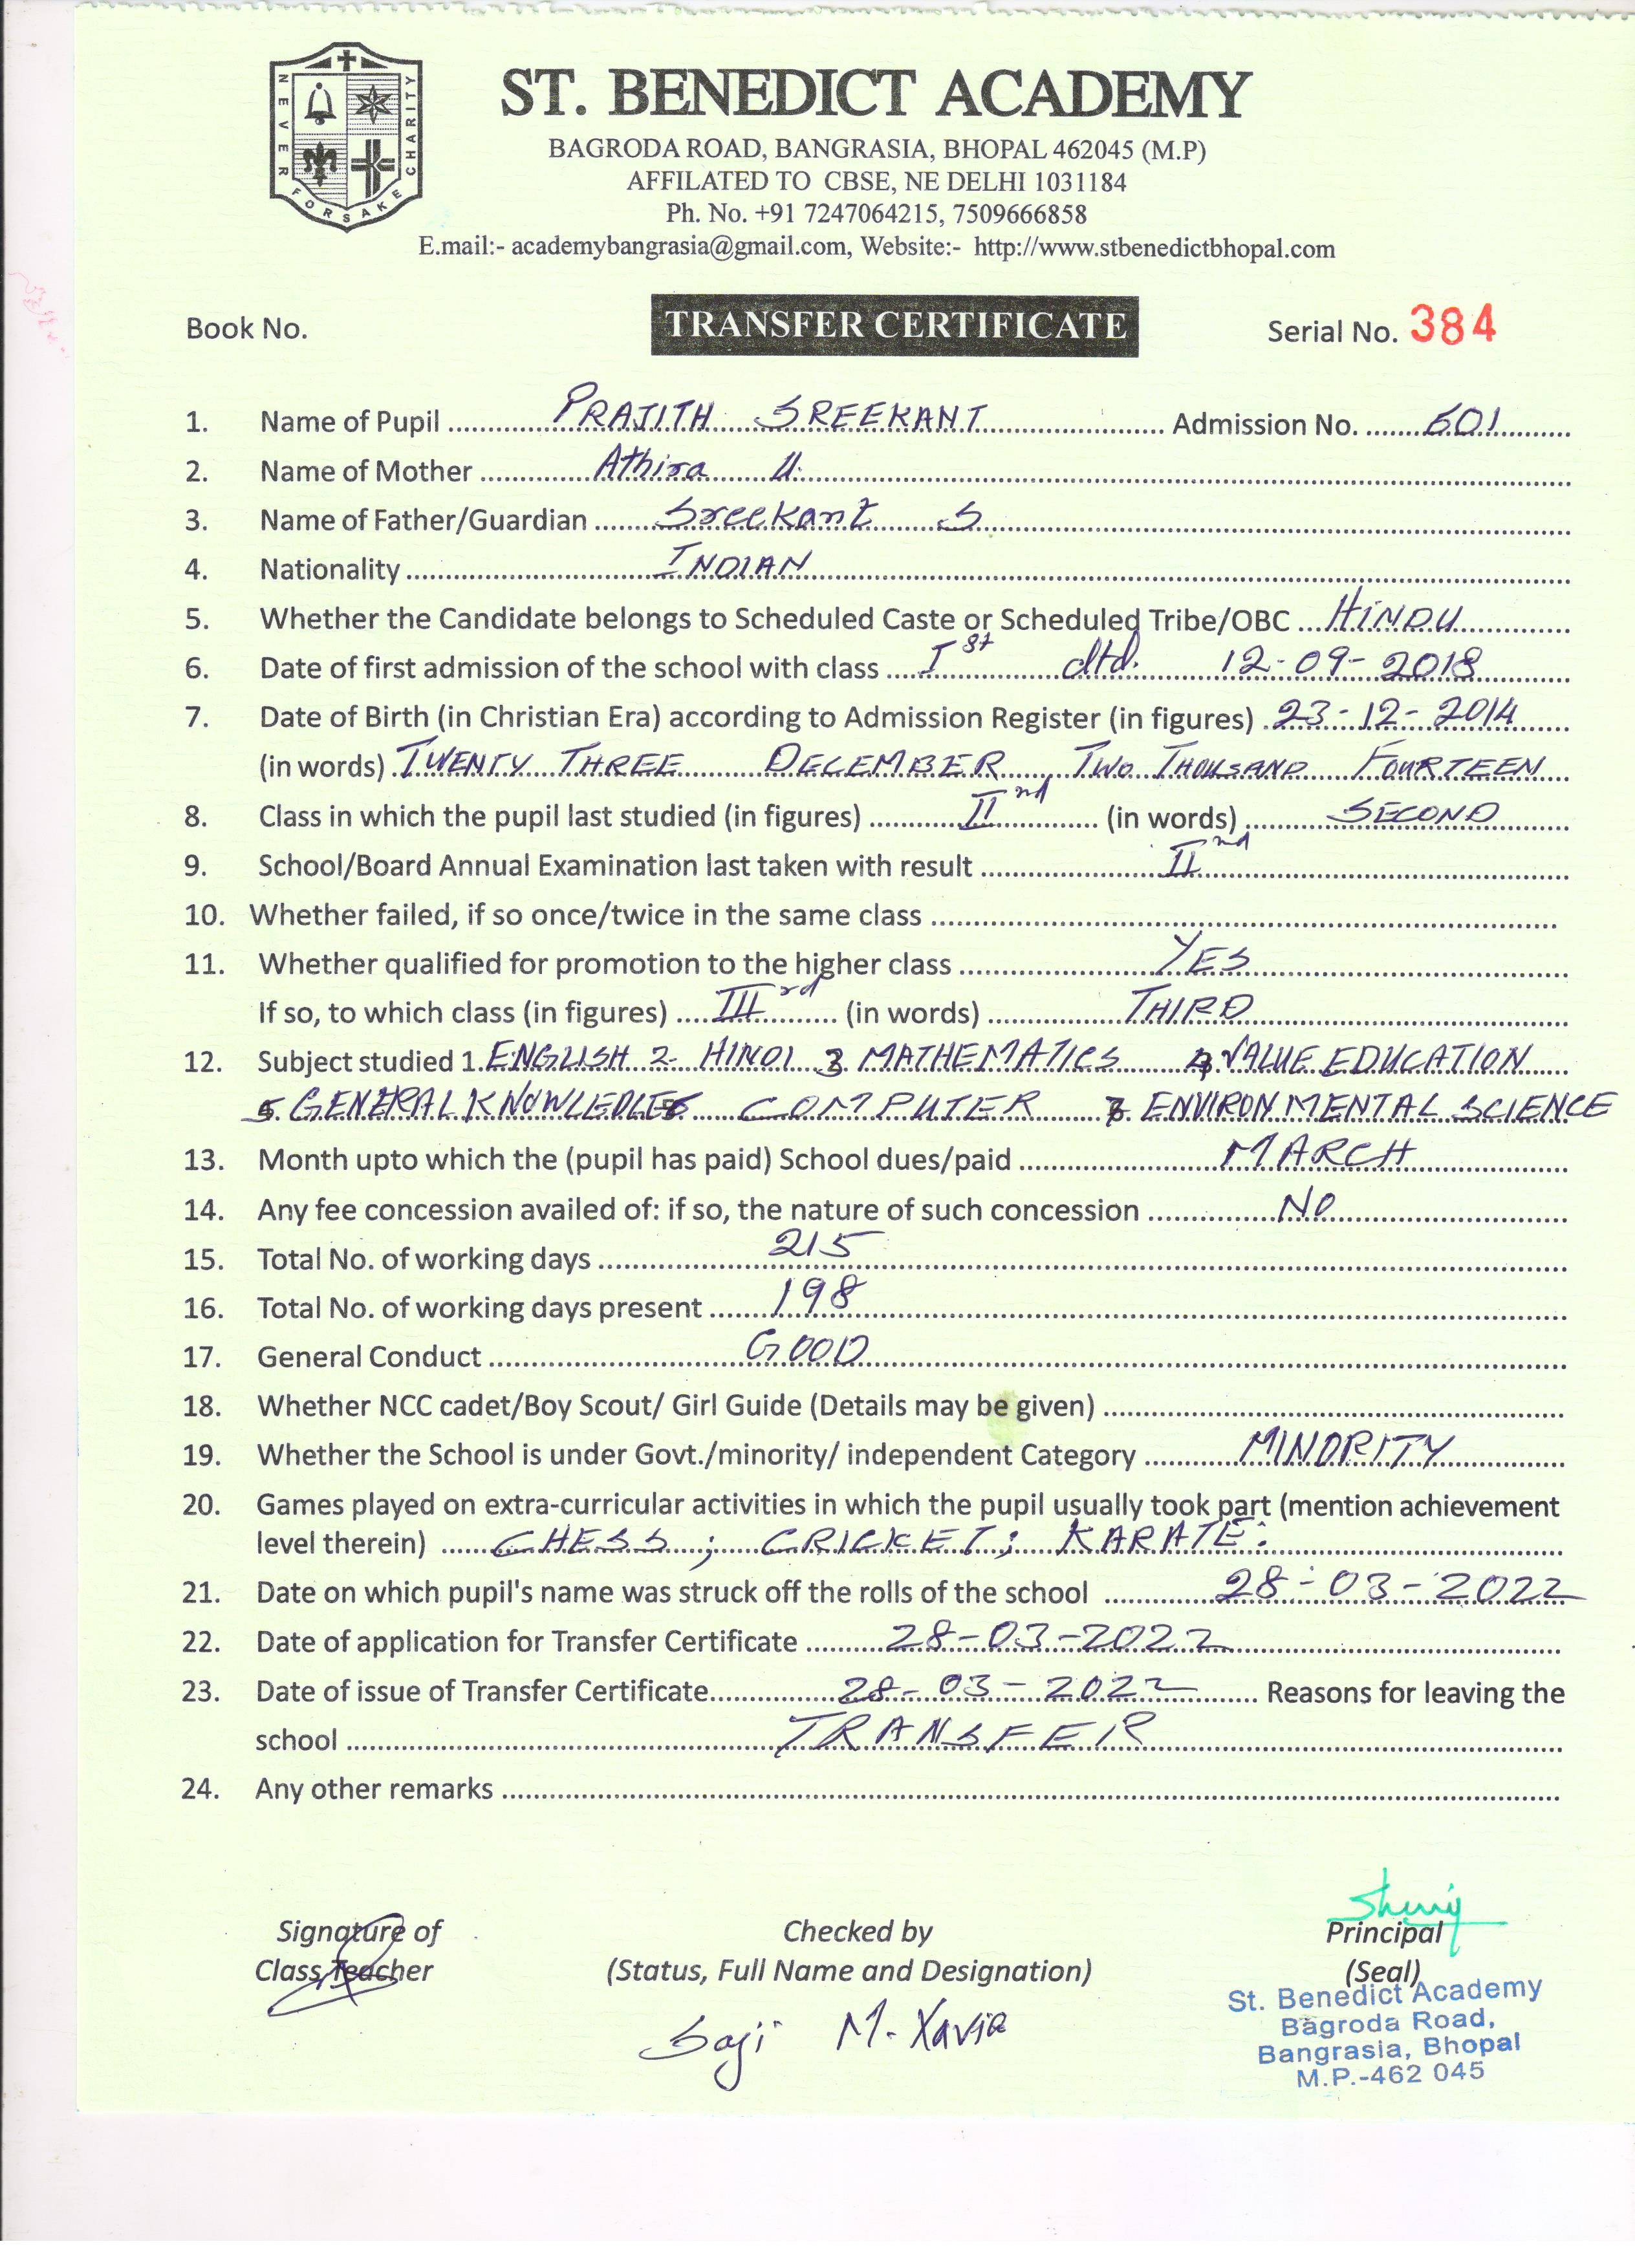 NEVER FORSAKE CHARITY
ST. BENEDICT ACADEMY
BAGRODA ROAD, BANGRASIA, BHOPAL 462045 (M.P)
AFFILATED TO CBSE, NE DELHI 1031184
Ph. No. +91 7247064215, 7509666858
E.mail:- academybangrasia@gmail.com, Website:- http://www.stbenedictbhopal.com
Book No. TRANSFER CERTIFICATE Serial No. 384
1. Name of Pupil PRAJITH SREEKANT Admission No. 601
2. Name of Mother Athira U.
3. Name of Father/Guardian Sreekant S
4. Nationality INDIAN
5. Whether the Candidate belongs to Scheduled Caste or Scheduled Tribe/OBC HINDU
6. Date of first admission of the school with class Ist dtd. 12-09-2018
7. Date of Birth (in Christian Era) according to Admission Register (in figures) 23-12-2014
(in words) TWENTY THREE DECEMBER TWO THOUSAND FOURTEEN
8. Class in which the pupil last studied (in figures) IInd (in words) SECOND
9. School/Board Annual Examination last taken with result IInd
10. Whether failed, if so once/twice in the same class
11. Whether qualified for promotion to the higher class YES
If so, to which class (in figures) IIIrd (in words) THIRD
12. Subject studied 1. ENGLISH 2. HINDI 3. MATHEMATICS 4. VALUE EDUCATION
5. GENERAL KNOWLEDGE 6. COMPUTER 7. ENVIRONMENTAL SCIENCE
13. Month upto which the (pupil has paid) School dues/paid MARCH
14. Any fee concession availed of: if so, the nature of such concession NO
15. Total No. of working days 215
16. Total No. of working days present 198
17. General Conduct GOOD
18. Whether NCC cadet/Boy Scout/ Girl Guide (Details may be given)
19. Whether the School is under Govt./minority/ independent Category MINORITY
20. Games played on extra-curricular activities in which the pupil usually took part (mention achievement
level therein) CHESS ; CRICKET ; KARATE.
21. Date on which pupil's name was struck off the rolls of the school 28-03-2022
22. Date of application for Transfer Certificate 28-03-2022
23. Date of issue of Transfer Certificate 28-03-2022 Reasons for leaving the
school TRANSFER
24. Any other remarks
Signature of Checked by Principal
Class Teacher (Status, Full Name and Designation) (Seal)
Saji M. Xavier
St. Benedict Academy
Bagroda Road,
Bangrasia, Bhopal
M.P.-462 045